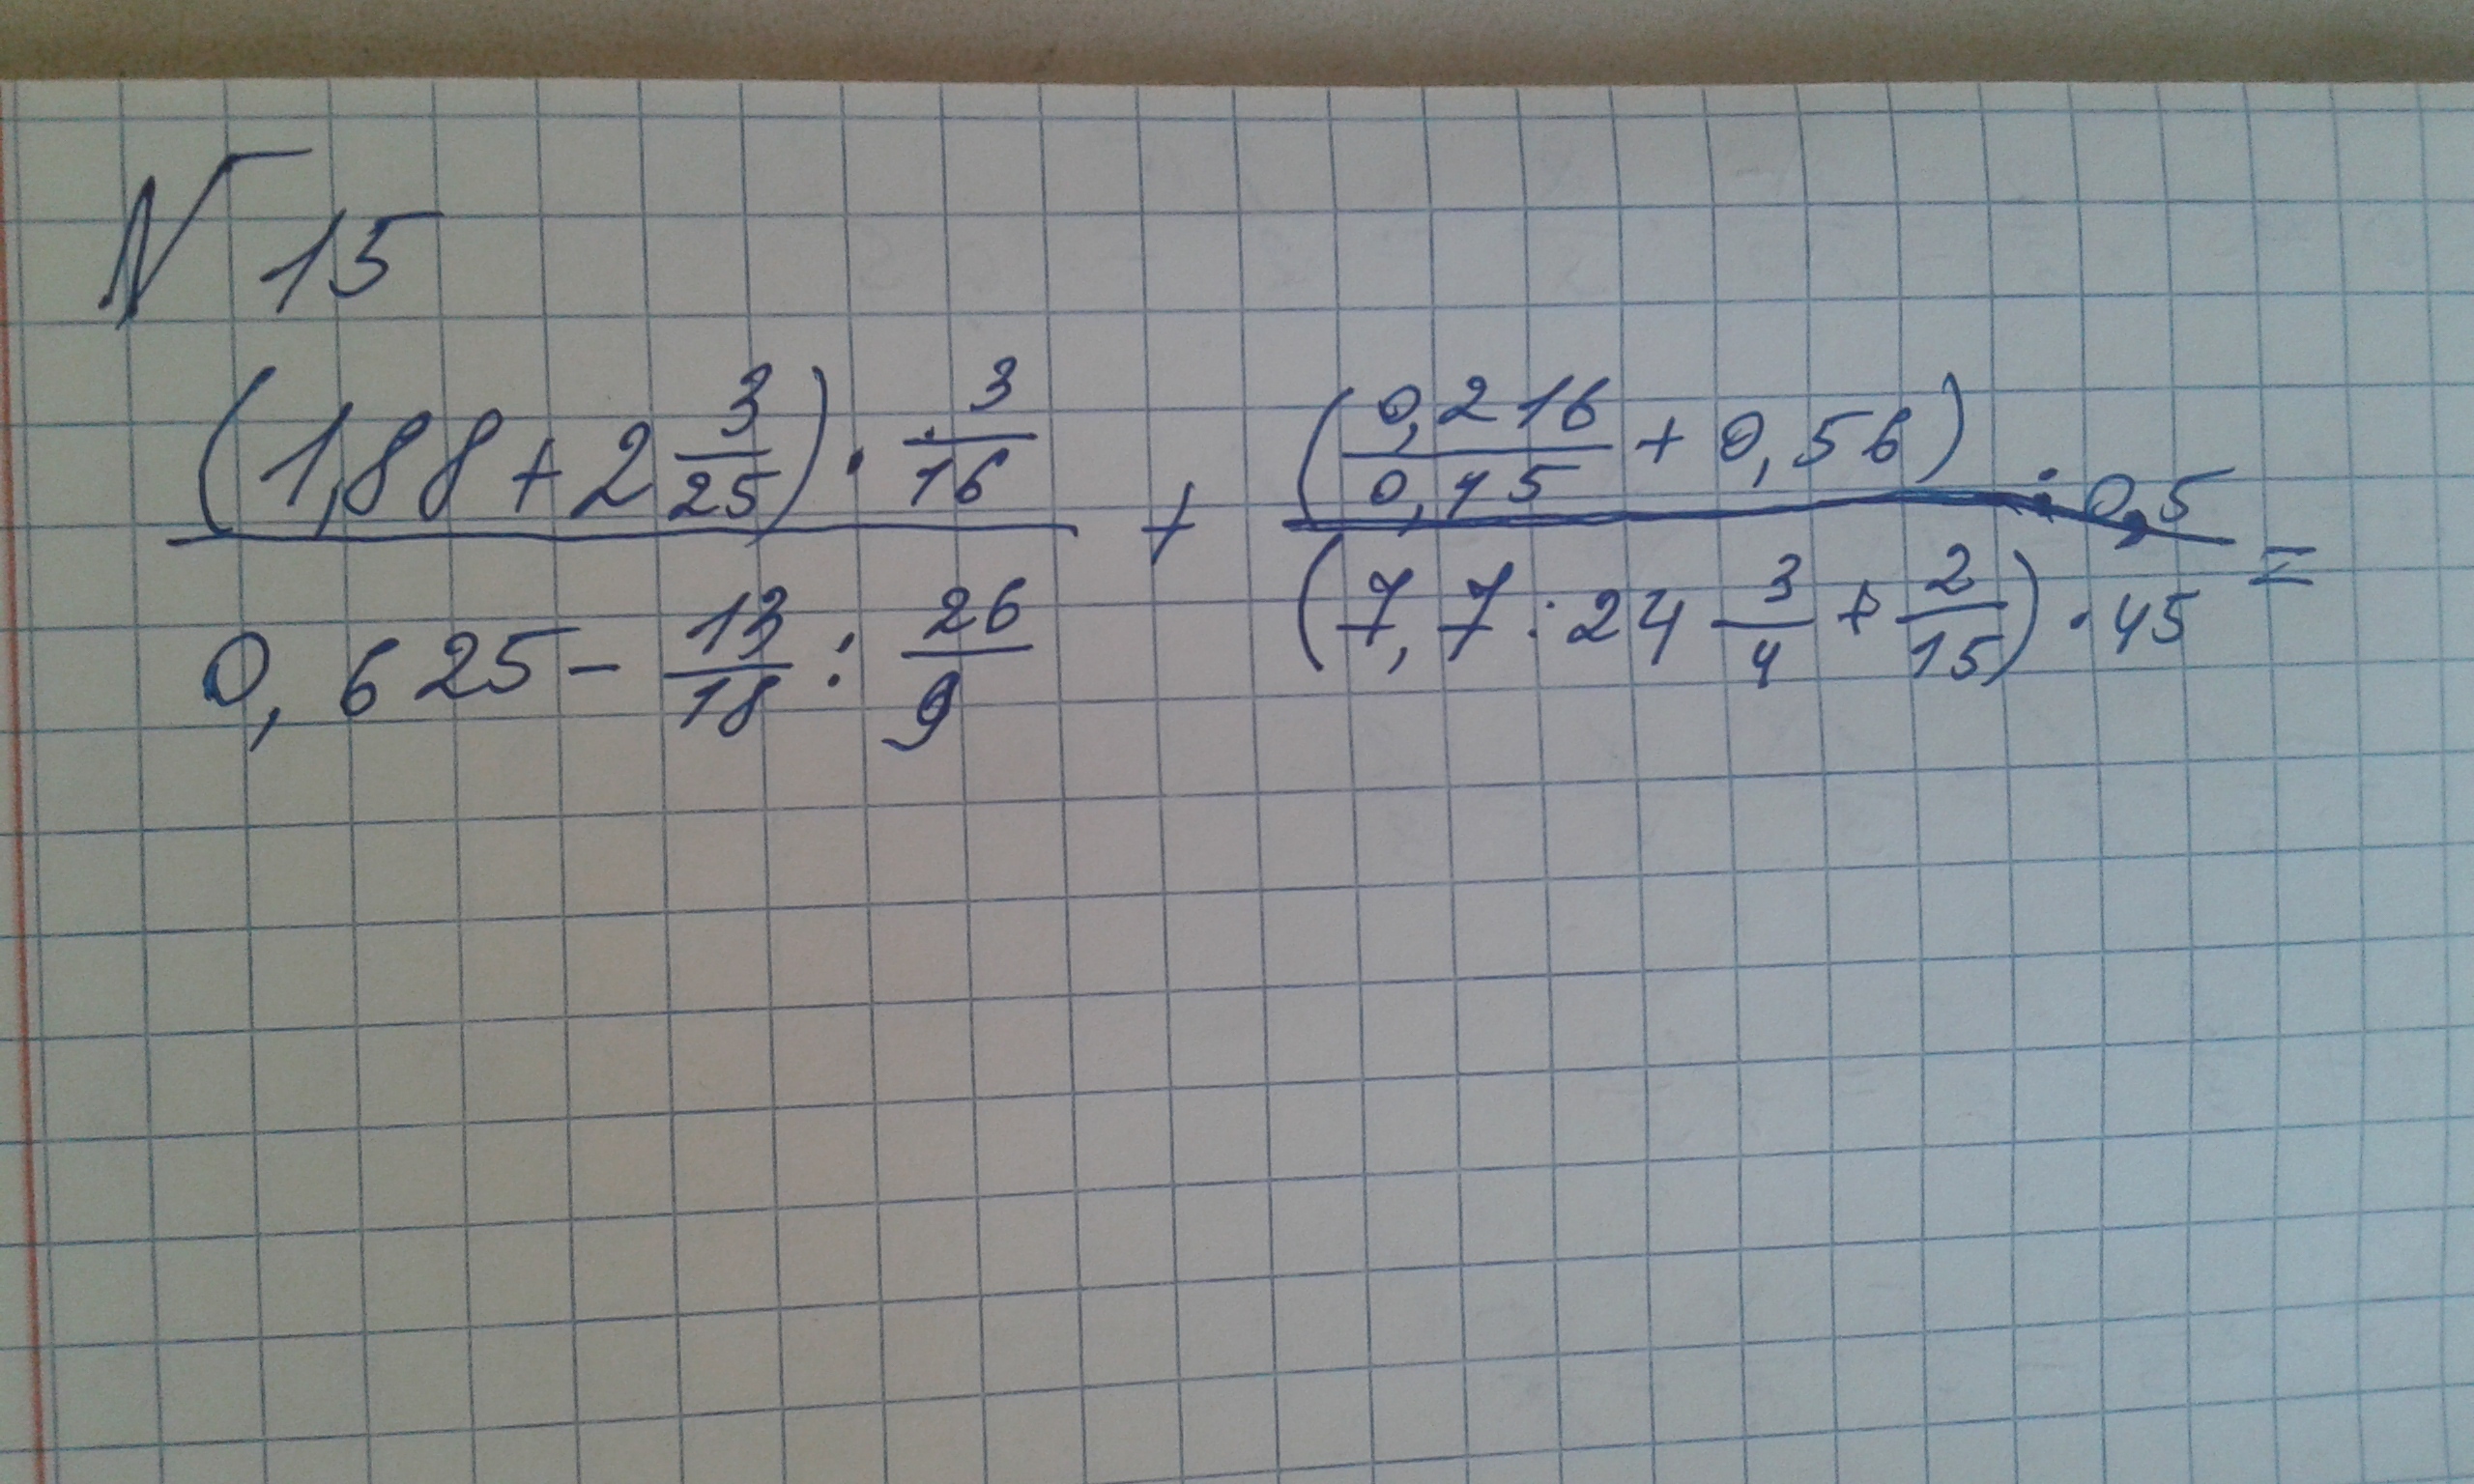 N 15
(1,88 + 2 3/25) · 3/16 / 0,625 - 13/18 : 26/9 + (0,216/0,15 + 0,56) : 0,5 / (7,7 : 24 3/4 + 2/15) · 45 =